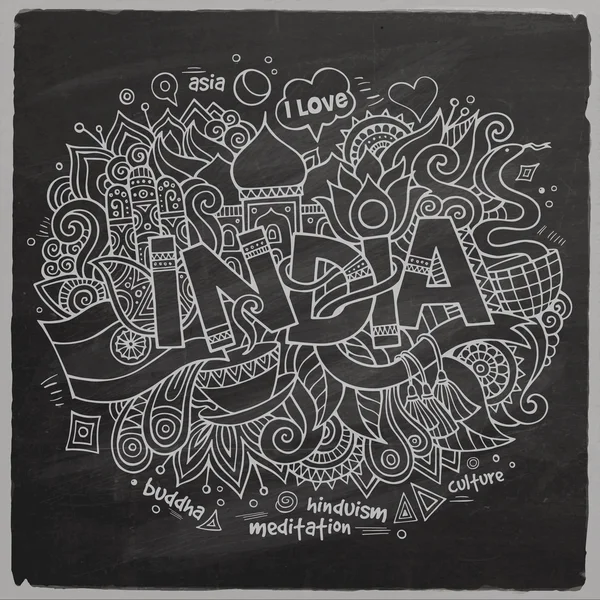 asia
I LOVE
INDIA
buddha
hinduism
culture
meditation